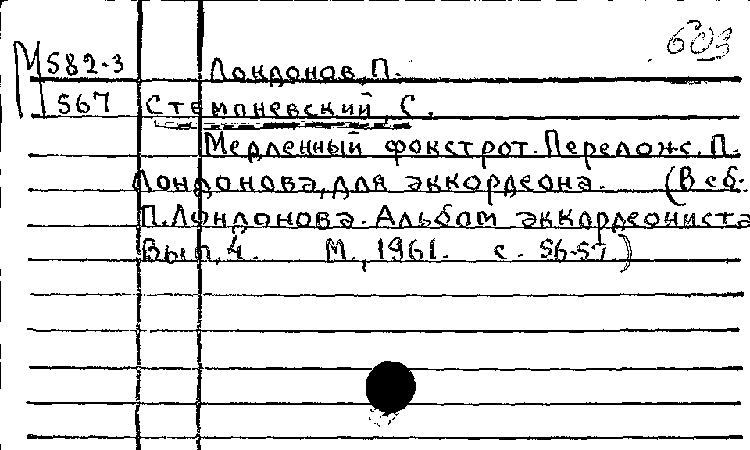 603
М582-3 Лондонов, П.
567 Стемпневский, С.
Медленный фокстрот. Перелож. П.
Лондонова, для аккордеона. (В сб:
П. Лондонова. Альбом аккордеониста
Вып. 4. М., 1961. с. 56-57)